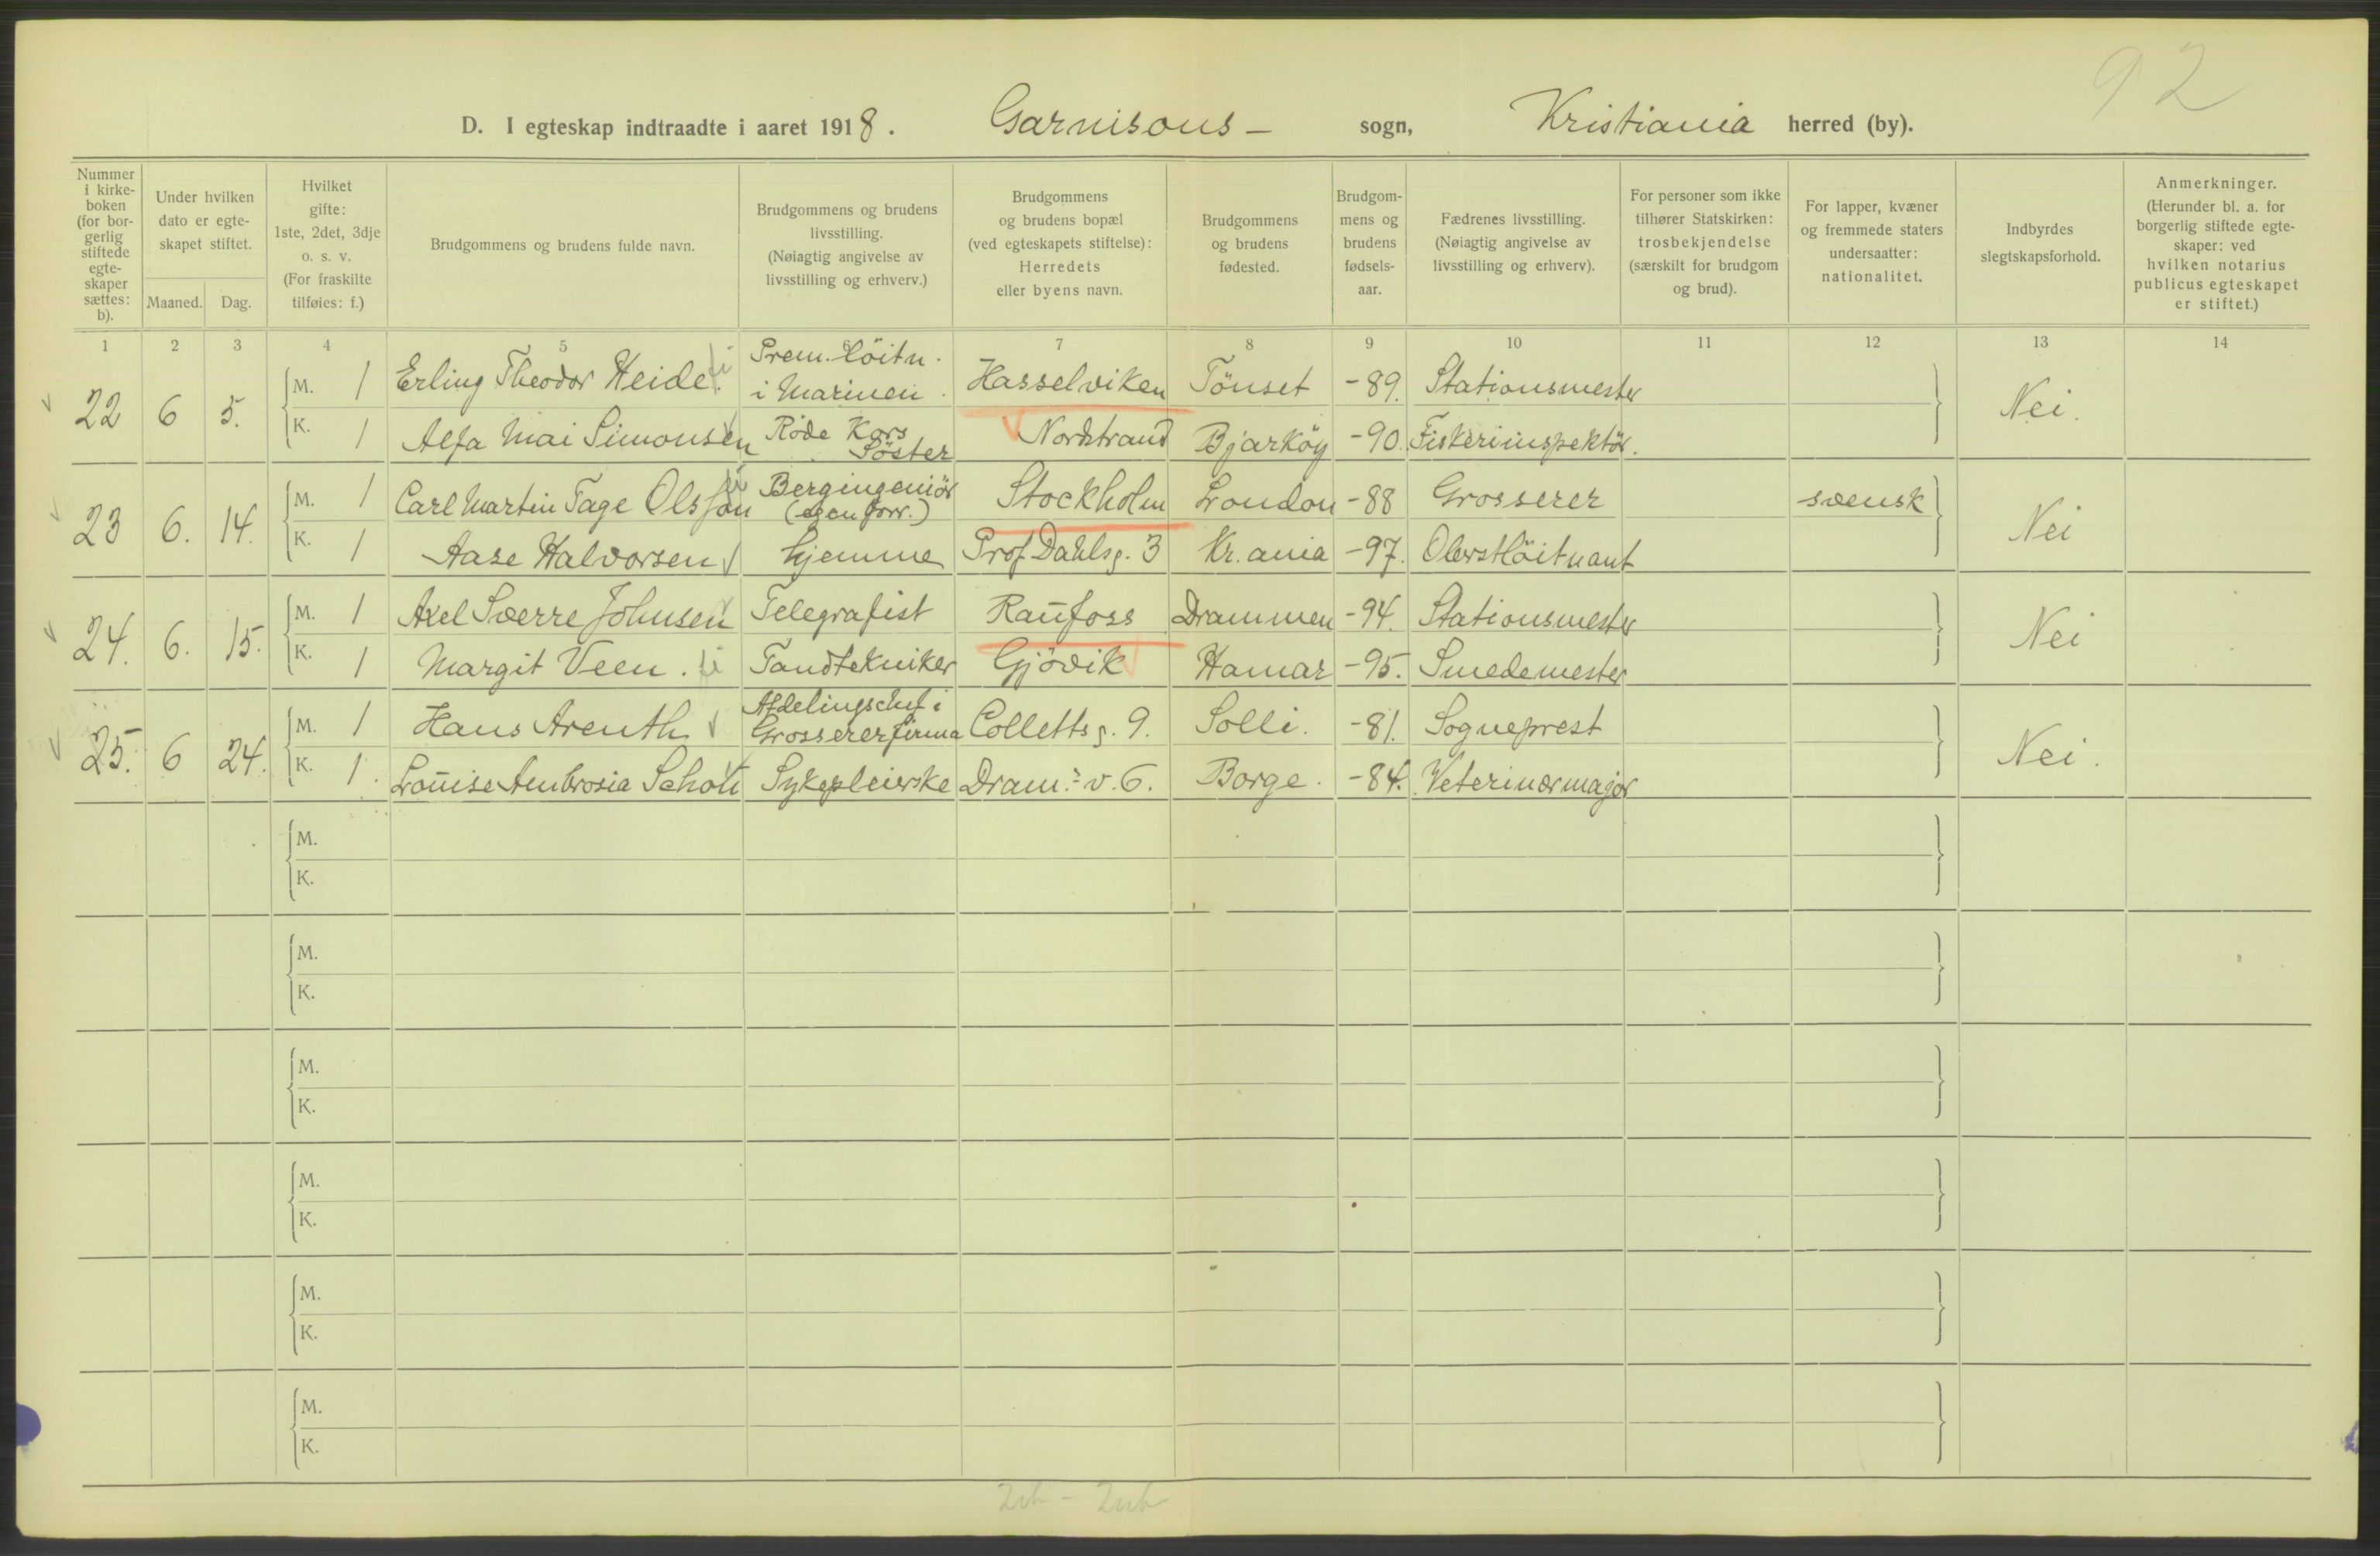 92
D. I egteskap indtraadte i aaret 1918. Garnisons- sogn, Kristiania herred (by).
Nummer i kirke-boken (for bor-gerlig stiftede egte-skaper sættes: b).
Under hvilken dato er egte-skapet stiftet.
Maaned. Dag.
Hvilket gifte: 1ste, 2det, 3dje o. s. v. (For fraskilte tilføies: f.)
Brudgommens og brudens fulde navn.
Brudgommens og brudens livsstilling. (Nøiagtig angivelse av livsstilling og erhverv.)
Brudgommens og brudens bopæl (ved egteskapets stiftelse): Herredets eller byens navn.
Brudgommens og brudens fødested.
Brudgom-mens og brudens fødsels-aar.
Fædrenes livsstilling. (Nøiagtig angivelse av livsstilling og erhverv).
For personer som ikke tilhører Statskirken: trosbekjendelse (særskilt for brudgom og brud).
For lapper, kvæner og fremmede staters undersaatter: nationalitet.
Indbyrdes slegtskapsforhold.
Anmerkninger. (Herunder bl. a. for borgerlig stiftede egte-skaper: ved hvilken notarius publicus egteskapet er stiftet.)
1 2 3 4 5 6 7 8 9 10 11 12 13 14
22 6 5. M. 1 Erling Theodor Heide. Prem. löitn. i Marinen. Hasselviken Tönset -89. Stationsmester Nei.
K. 1 Alfa Mai Simonsen Röde Kors Söster Nordstrand Bjarköy -90. Fiskeriinspektör.
23 6. 14. M. 1 Carl Martin Tage Olsson Bergingeniör (egen forr.) Stockholm London -88 Grosserer svensk Nei
K. 1 Aase Halvorsen hjemme Prof Dahlsg. 3 Kr.ania -97. Oberstlöitnant
24. 6. 15. M. 1 Axel Sverre Johnsen Telegrafist Raufoss Drammen -94. Stationsmester Nei
K. 1 Margit Veen. Tandtekniker Gjövik Hamar -95. Smedemester
25. 6 24. M. 1 Hans Arentz Afdelingschef i Grossererfirma Collettsg. 9. Solli. -81. Sogneprest Nei.
K. 1. Louise Ambrosia Schou Sykepleierske Dram.v. 6. Borge. -84. Veterinærmajor
M.
K.
M.
K.
M.
K.
M.
K.
M.
K.
M.
K.